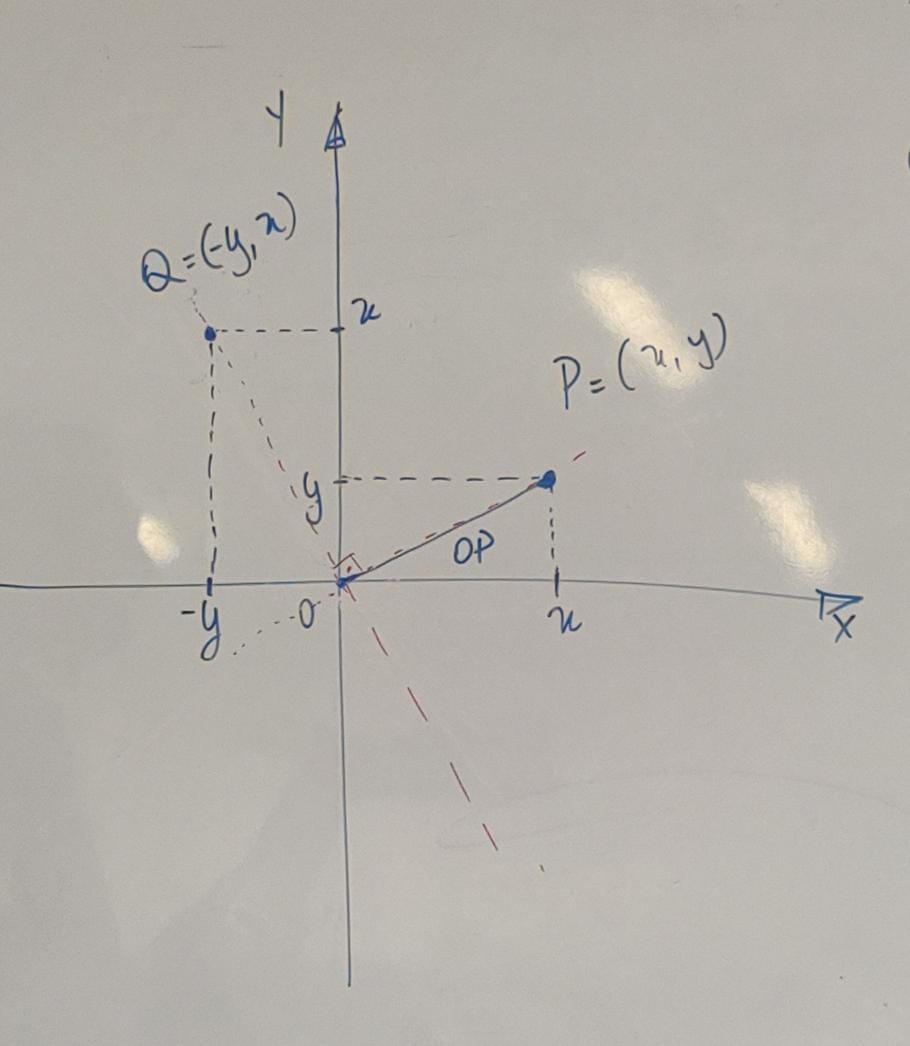 Y
Q=(-y,x)
x
P=(x,y)
y
OP
-y
O
x
X